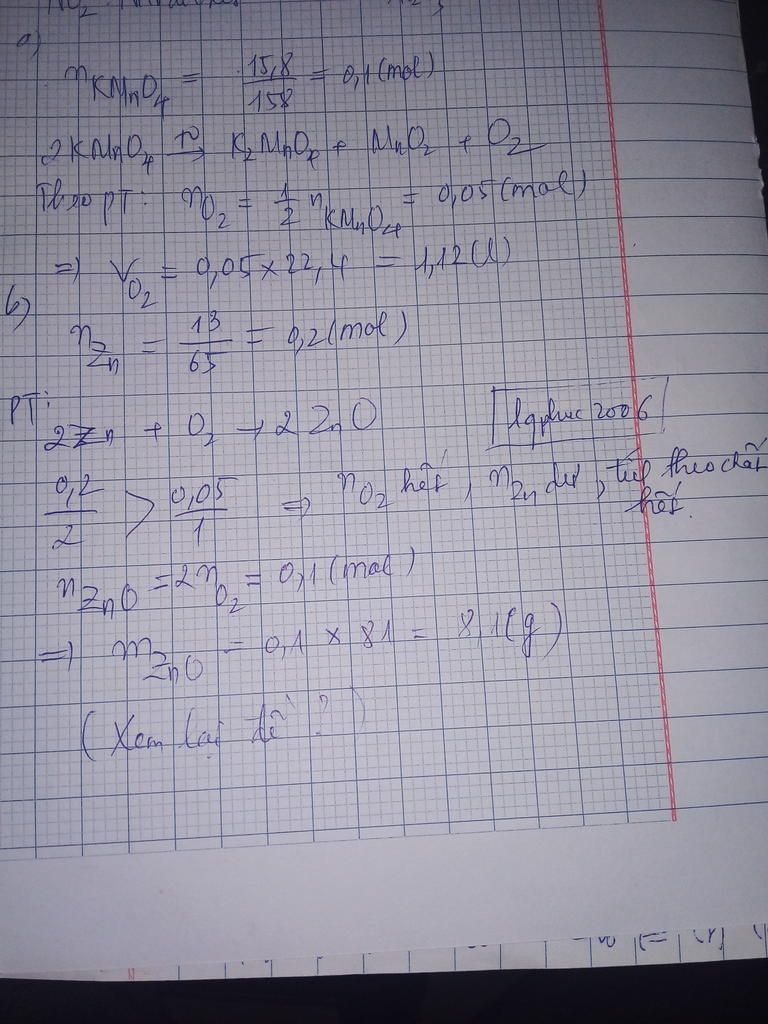 NO2
a)
nKMnO4 = 15,8/158 = 0,1 (mol)
2KMnO4 t°→ K2MnO4 + MnO2 + O2
Theo PT: nO2 = 1/2 nKMnO4 = 0,05 (mol)
=> VO2 = 0,05 x 22,4 = 1,12 (l)
b)
nZn = 13/65 = 0,2 (mol)
PT:
2Zn + O2 → 2ZnO
lgphuc2006
0,2/2 > 0,05/1 => nO2 hết, nZn dư, tính theo chất
hết.
nZnO = 2nO2 = 0,1 (mol)
=> mZnO = 0,1 x 81 = 8,1 (g)
(Xem lại đề ?)